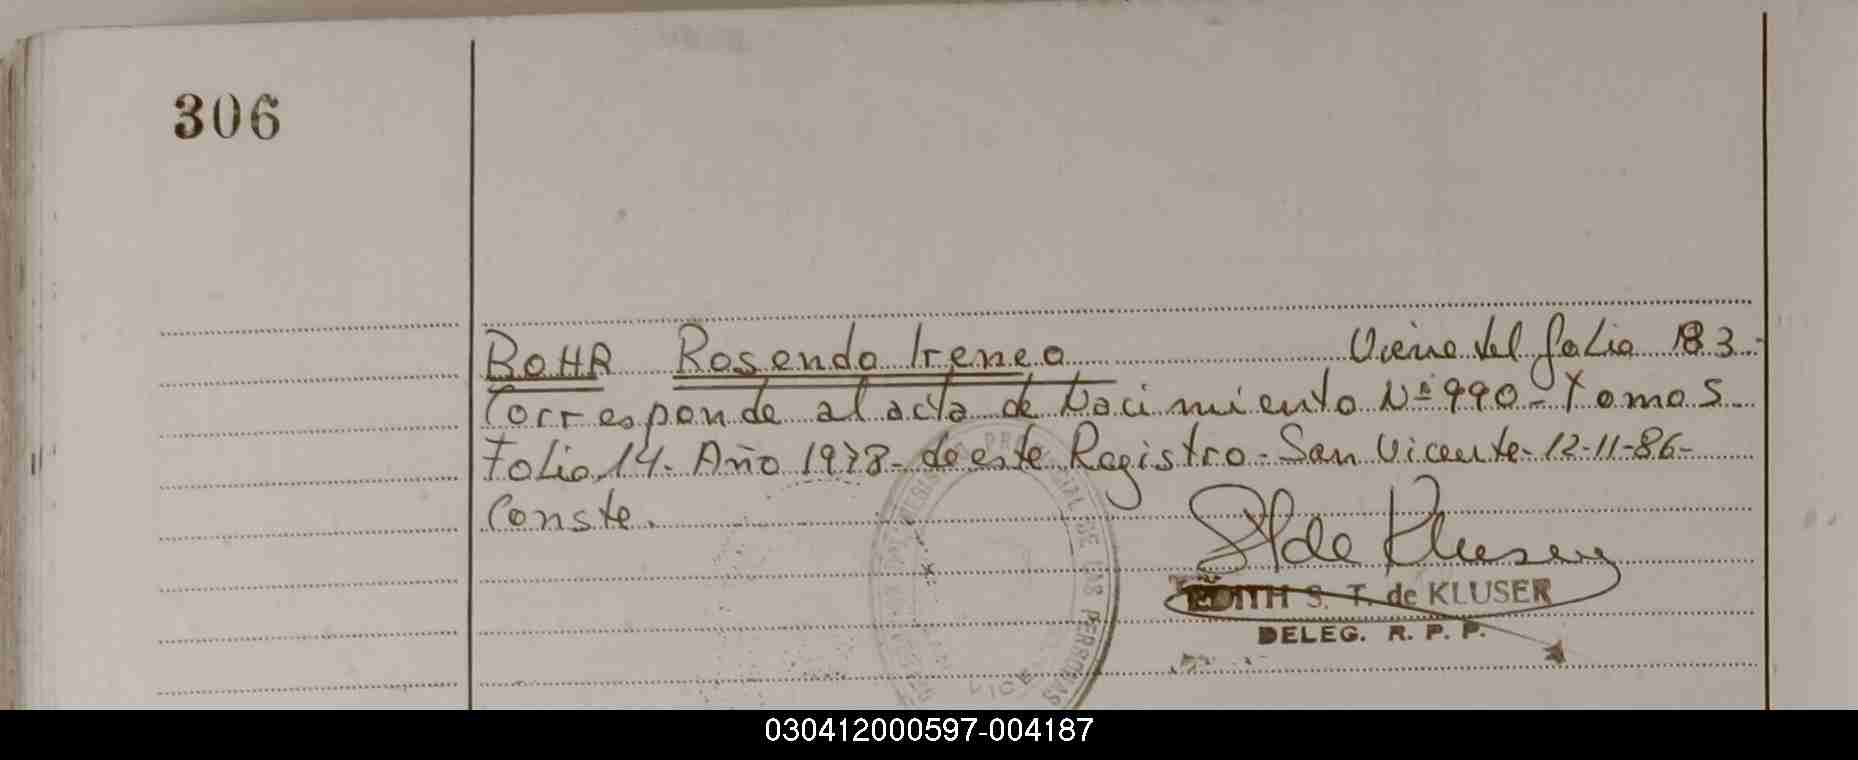 306
BOHR Rosendo Ireneo Viene del folio 183.-
Corresponde al acta de Nacimiento Nº 990 - Tomo 5
Folio 14. Año 1978 - de este Registro - San Vicente - 12-11-86-
Conste.
REGISTRO PROVINCIAL DE LAS PERSONAS
S T de Kluser
EDITH S. T. de KLUSER
DELEG. R. P. P.
030412000597-004187